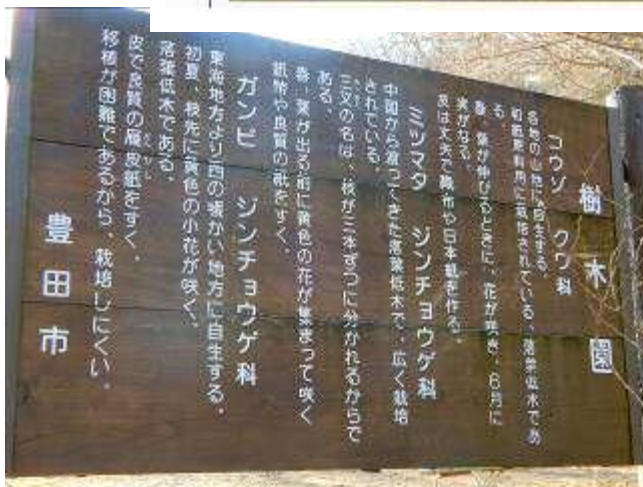 樹木園
コウゾ クワ科
各地の山地に自生する。
和紙原料用に栽培されている、落葉低木であ
る。
春、葉が伸びるときに、花が咲き、6月に
実がなる。
皮は丈夫で織布や日本紙を作る。
ミツマタ ジンチョウゲ科
中国から渡ってきた落葉低木で、広く栽培
されている。
三又の名は、枝が三本ずつに分かれるからで
ある。
春、葉が出る前に黄色の花が集まって咲く
紙幣や良質の紙をすく。
ガンピ ジンチョウゲ科
東海地方より西の暖かい地方に自生する。
初夏、枝先に黄色の小花が咲く、
落葉低木である。
皮で良質の雁皮紙をすく。
移植が困難であるから、栽培しにくい。
豊田市